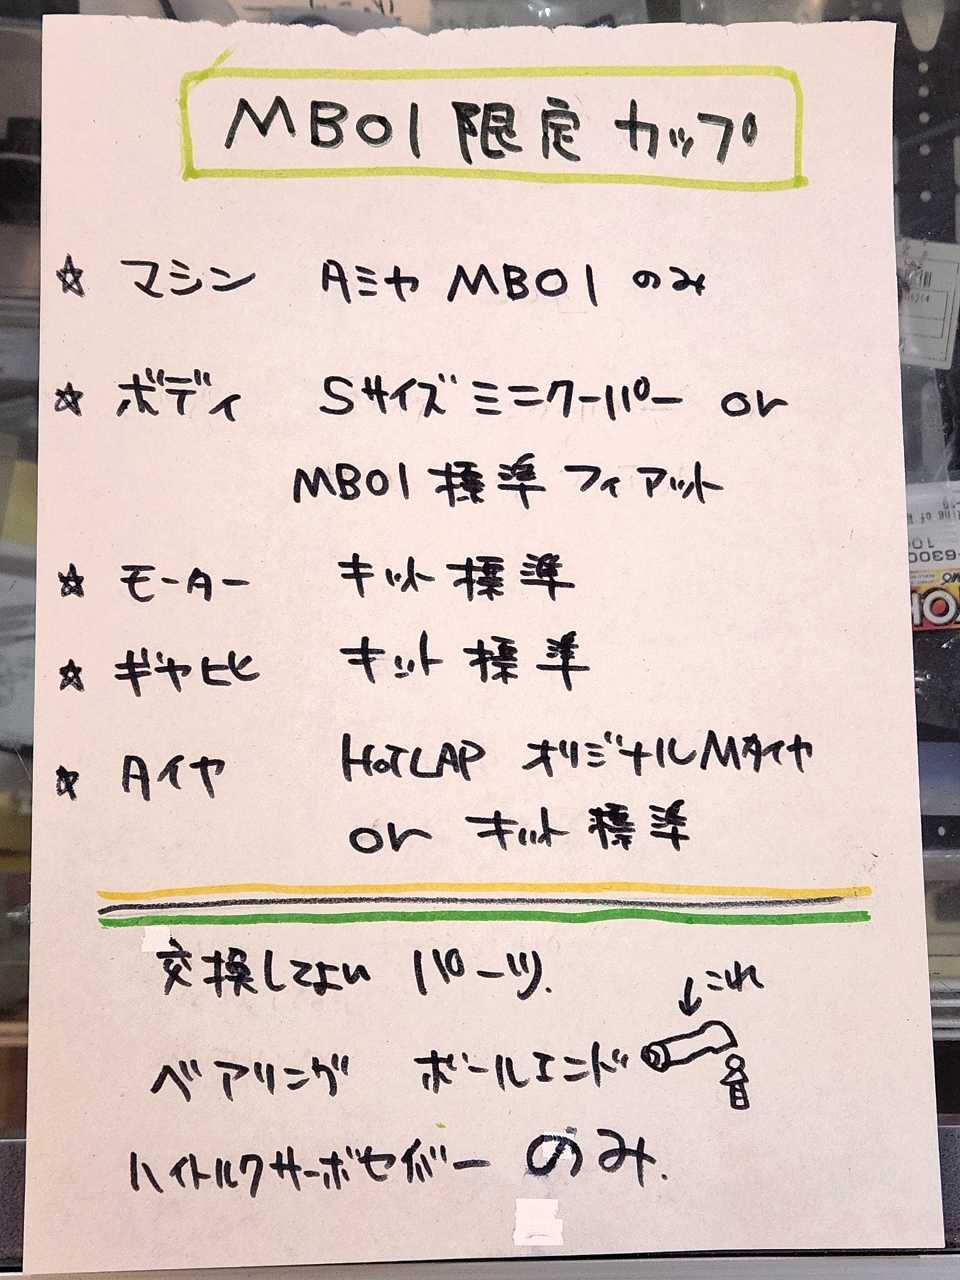 MB01 限定 カップ
☆ マシン タミヤ MB01 のみ
☆ ボディ Sサイズ ミニクーパー or
MB01 標準 フィアット
☆ モーター キット標準
☆ ギヤ比 キット標準
☆ タイヤ HOTLAP オリジナル Mタイヤ
or キット標準
交換してよい パーツ.
↓これ
ベアリング ボールエンド
ハイトルクサーボセイバー のみ.